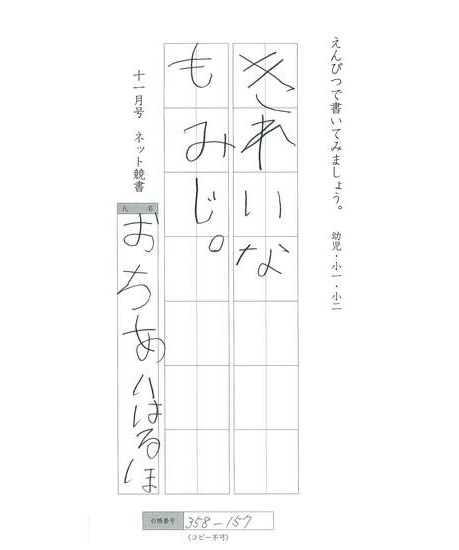 えんぴつで書いてみましょう。 幼児・小一・小二
きれいな
もみじ。
十一月号 ネット競書
氏名
おちあいはるほ
番号 358-157
(コピー不可)